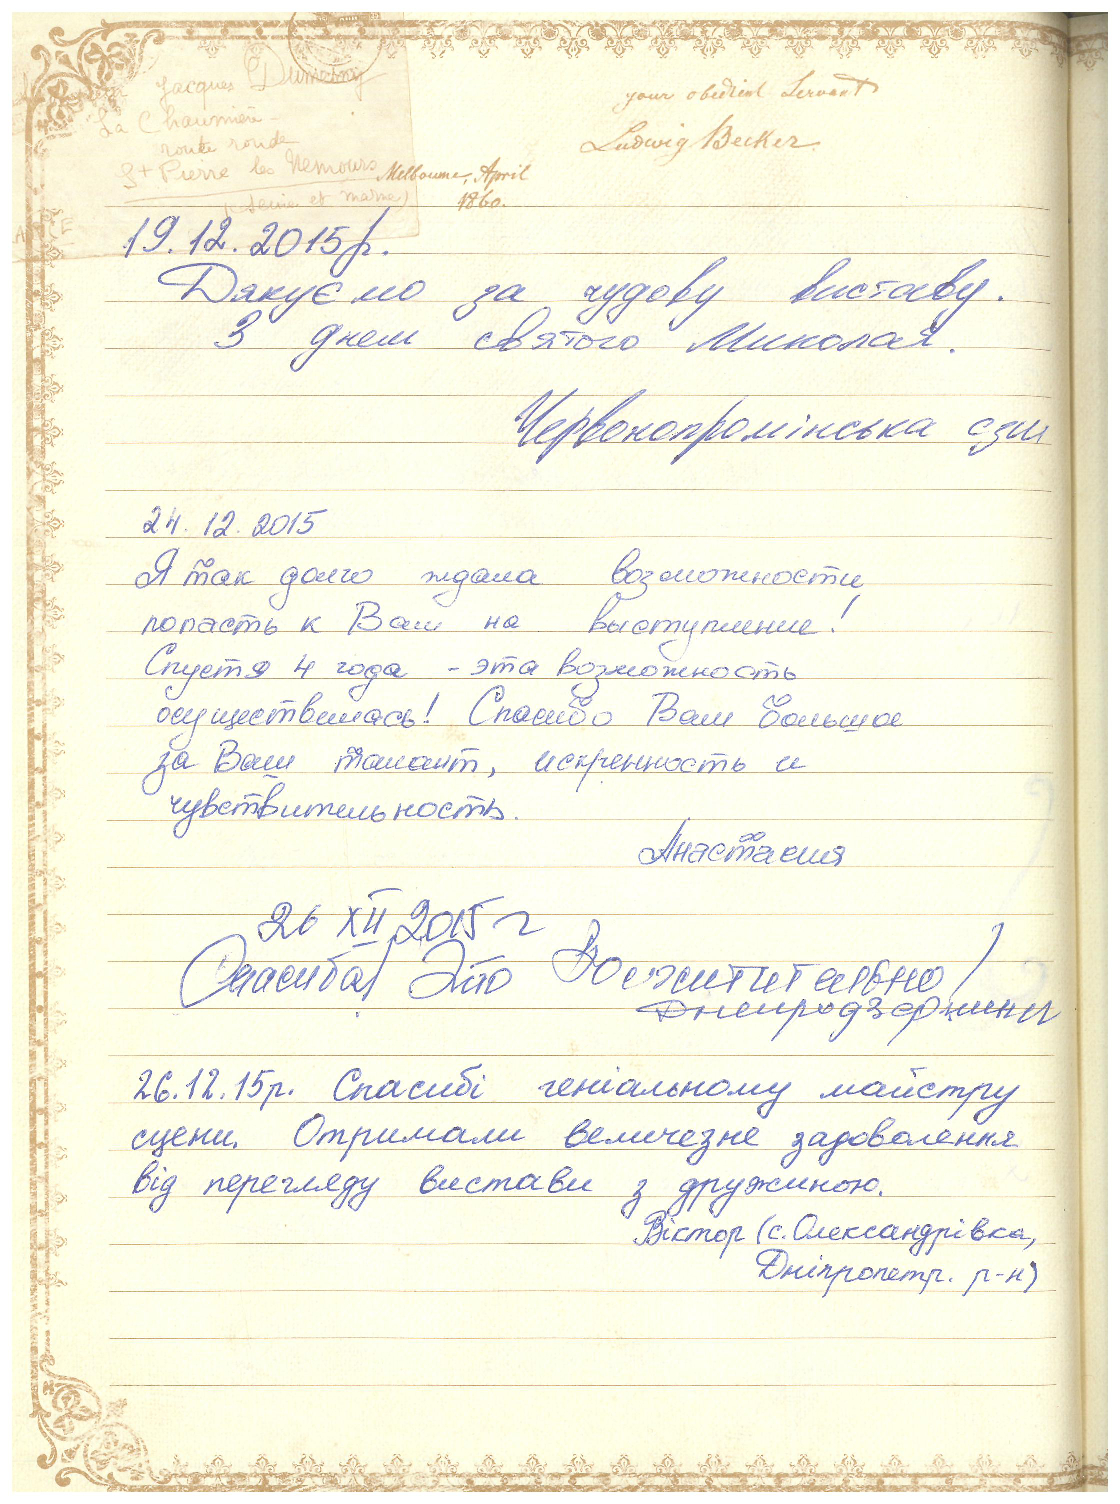 Jacques Dumesny
La Chaumière -
route ronde
St Pierre les Nemours
(Seine et marne)
your obedient Servant
Ludwig Becker
Melbourne, April
1860.
19.12.2015р.
Дякуємо за чудову виставу.
З днем святого Миколая.
Червонопромінська сзш
24.12.2015
Я так долго ждала возможности
попасть к Вам на выступление!
Спустя 4 года - эта возможность
осуществилась! Спасибо Вам большое
за Ваш талант, искренность и
чувствительность.
Анастасия
26 XII 2015 г
Спасибо! Это
26.12.15р. Спасибі геніальному майстру
сцени. Отримали величезне задоволення
від перегляду вистави з дружиною.
Віктор (с. Олександрівка,
Дніпропетр. р-н)